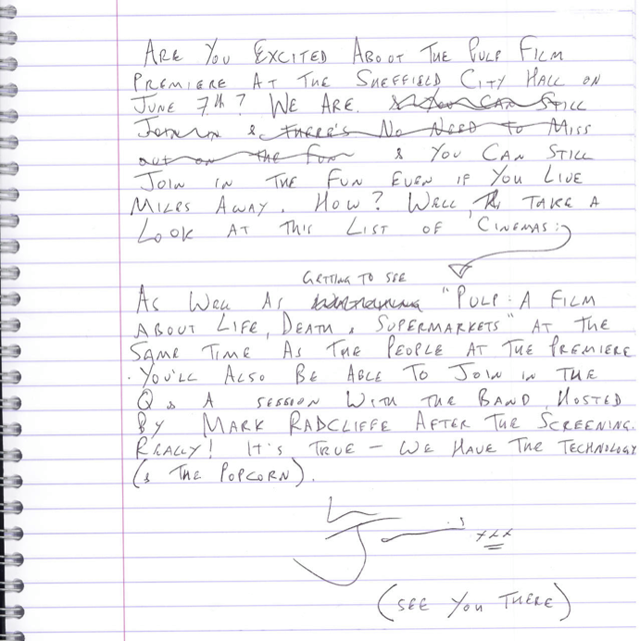 ARE YOU EXCITED ABOUT THE PULP FILM
PREMIERE AT THE SHEFFIELD CITY HALL ON
JUNE 7th? WE ARE. & YOU CAN STILL
JOIN IN & THERE'S NO NEED TO MISS
OUT ON THE FUN & YOU CAN STILL
JOIN IN THE FUN EVEN IF YOU LIVE
MILES AWAY. HOW? WELL, TAKE A
LOOK AT THIS LIST OF CINEMAS:
GETTING TO SEE
AS WELL AS "PULP: A FILM
ABOUT LIFE, DEATH & SUPERMARKETS" AT THE
SAME TIME AS THE PEOPLE AT THE PREMIERE
. YOU'LL ALSO BE ABLE TO JOIN IN THE
Q & A SESSION WITH THE BAND, HOSTED
BY MARK RADCLIFFE AFTER THE SCREENING.
REALLY! IT'S TRUE – WE HAVE THE TECHNOLOGY
(& THE POPCORN).
J xxx
(SEE YOU THERE)